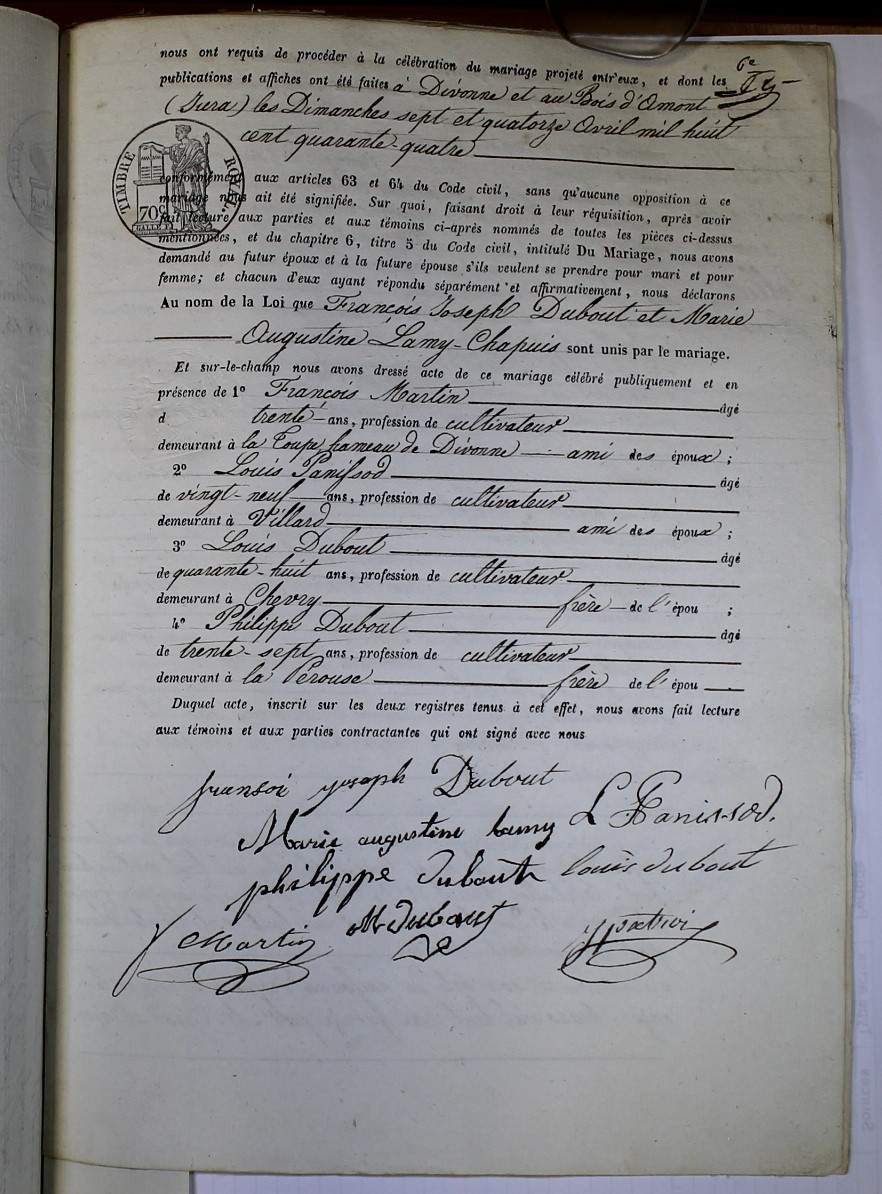 nous ont requis de procéder à la célébration du mariage projeté entr'eux, et dont les
6e
publications et affiches ont été faites à Divonne et au Bois d'Amont
(Jura) les Dimanches sept et quatorze Avril mil huit
cent quarante-quatre
TIMBRE ROYAL
70c
conformément aux articles 63 et 64 du Code civil, sans qu'aucune opposition à ce
mariage nous ait été signifiée. Sur quoi, faisant droit à leur réquisition, après avoir
fait lecture aux parties et aux témoins ci-après nommés de toutes les pièces ci-dessus
mentionnées, et du chapitre 6, titre 5 du Code civil, intitulé Du Mariage, nous avons
demandé au futur époux et à la future épouse s'ils veulent se prendre pour mari et pour
femme; et chacun d'eux ayant répondu séparément et affirmativement, nous déclarons
Au nom de la Loi que François Joseph Dubout et Marie
Augustine Lamy-Chapuis sont unis par le mariage.
Et sur-le-champ nous avons dressé acte de ce mariage célébré publiquement et en
présence de 1o François Martin âgé
d trente ans, profession de cultivateur
demeurant à la Coupe hameau de Divonne ami des époux;
2o Louis Panissod âgé
de vingt-neuf ans, profession de cultivateur
demeurant à Villard ami des époux;
3o Louis Dubout âgé
de quarante-huit ans, profession de cultivateur
demeurant à Chevry frère de l'épou ;
4o Philippe Dubout âgé
de trente-sept ans, profession de cultivateur
demeurant à la Pérouse frère de l'épou
Duquel acte, inscrit sur les deux registres tenus à cet effet, nous avons fait lecture
aux témoins et aux parties contractantes qui ont signé avec nous
fransoi joseph Dubout
Marie augustine Lamy L Panissod.
philippe dubouth louis dubout
f Martin M Dubout